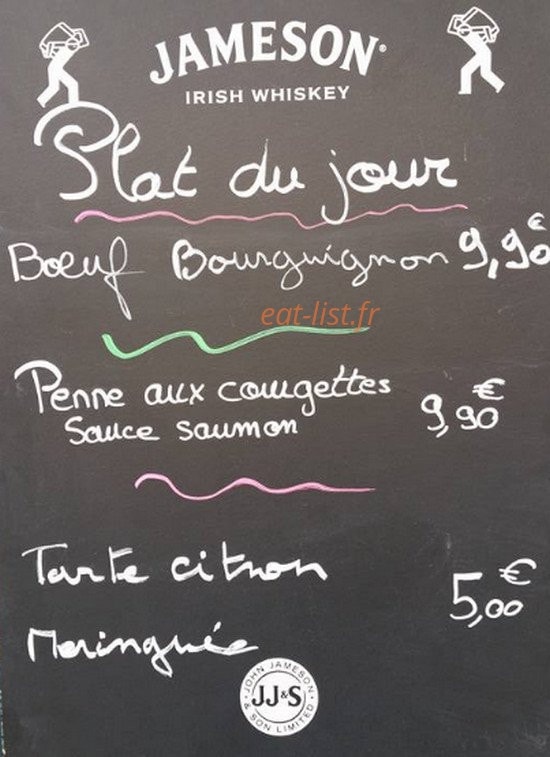 JAMESON®
IRISH WHISKEY
Plat du jour
Bœuf Bourguignon 9,90€
eat-list.fr
Penne aux courgettes
Sauce saumon 9,90€
Tarte citron
Meringuée 5,00€
JOHN JAMESON
JJ&S
& SON LIMITED